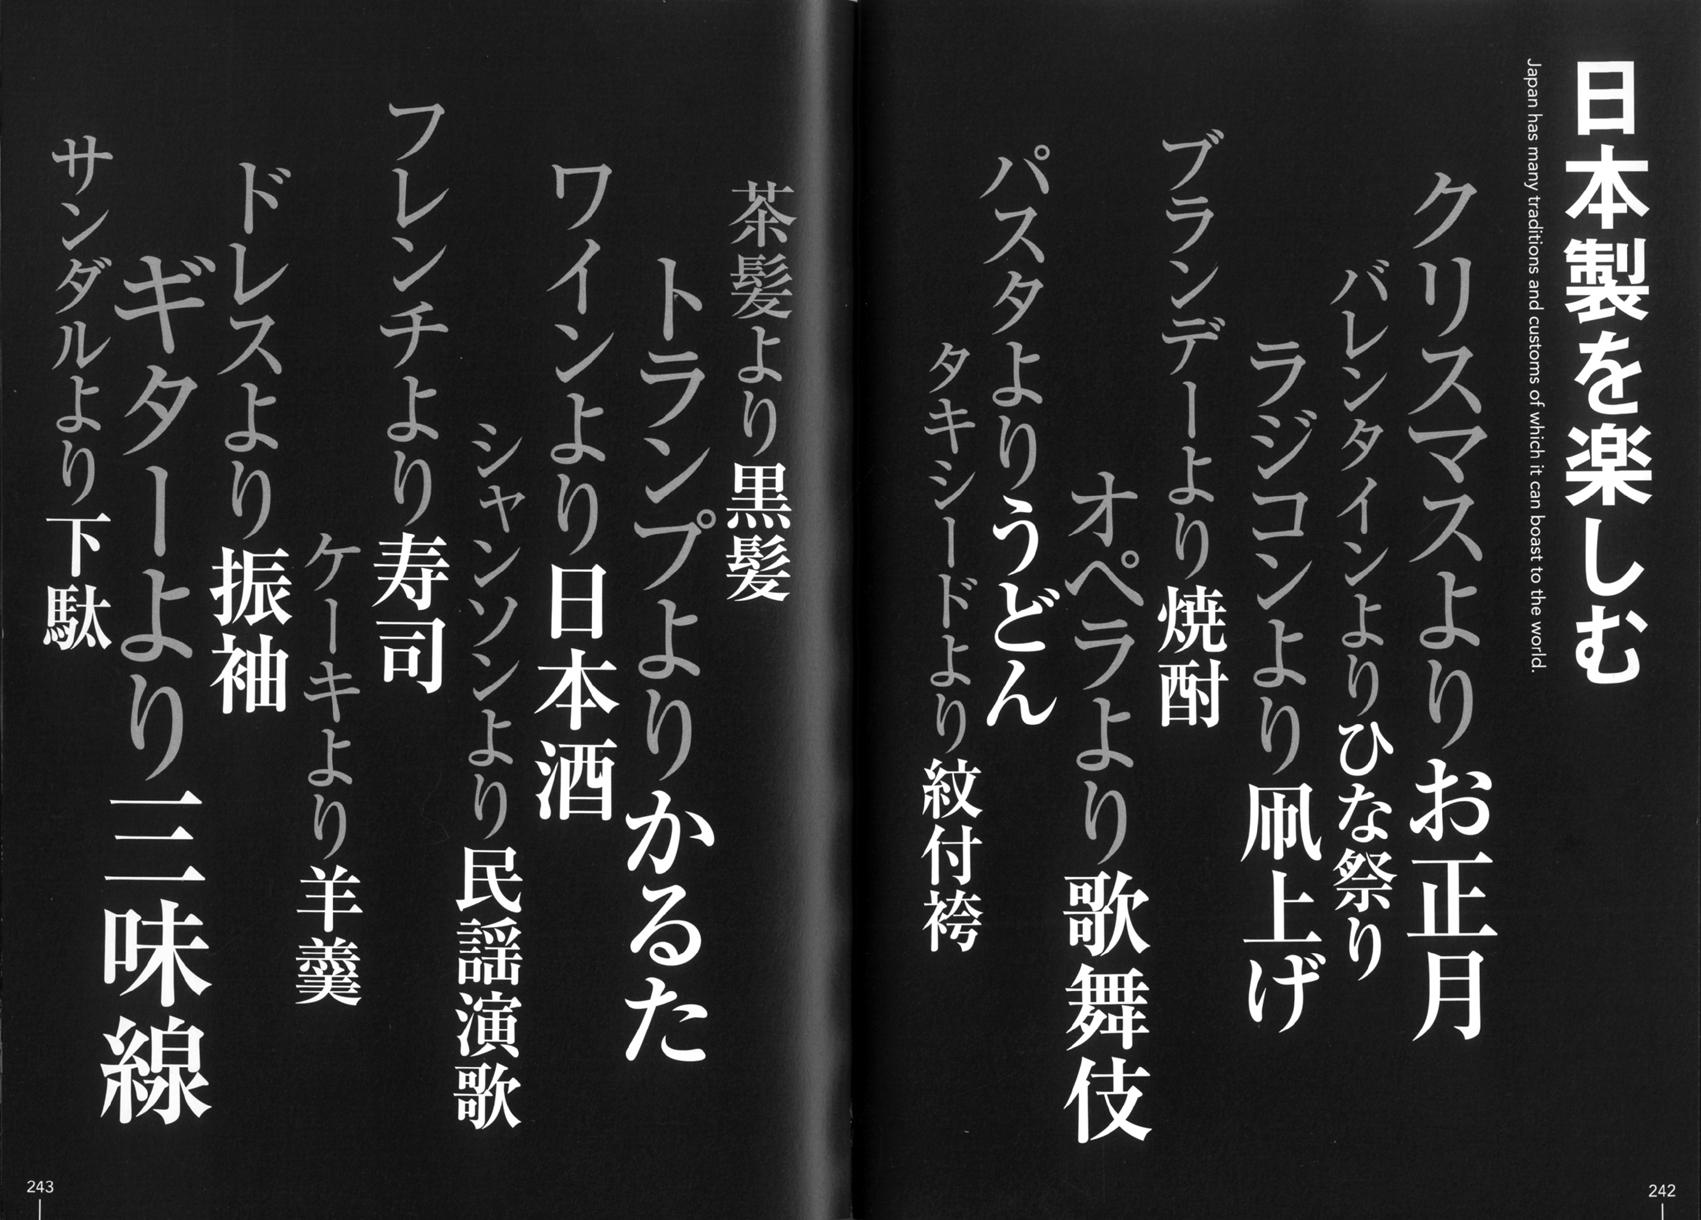 日本製を楽しむ
Japan has many traditions and customs of which it can boast to the world.
クリスマスよりお正月
バレンタインよりひな祭り
ラジコンより凧上げ
ブランデーより焼酎
オペラより歌舞伎
パスタよりうどん
タキシードより紋付袴
242
茶髪より黒髪
トランプよりかるた
ワインより日本酒
シャンソンより民謡演歌
フレンチより寿司
ケーキより羊羹
ドレスより振袖
ギターより三味線
サンダルより下駄
243